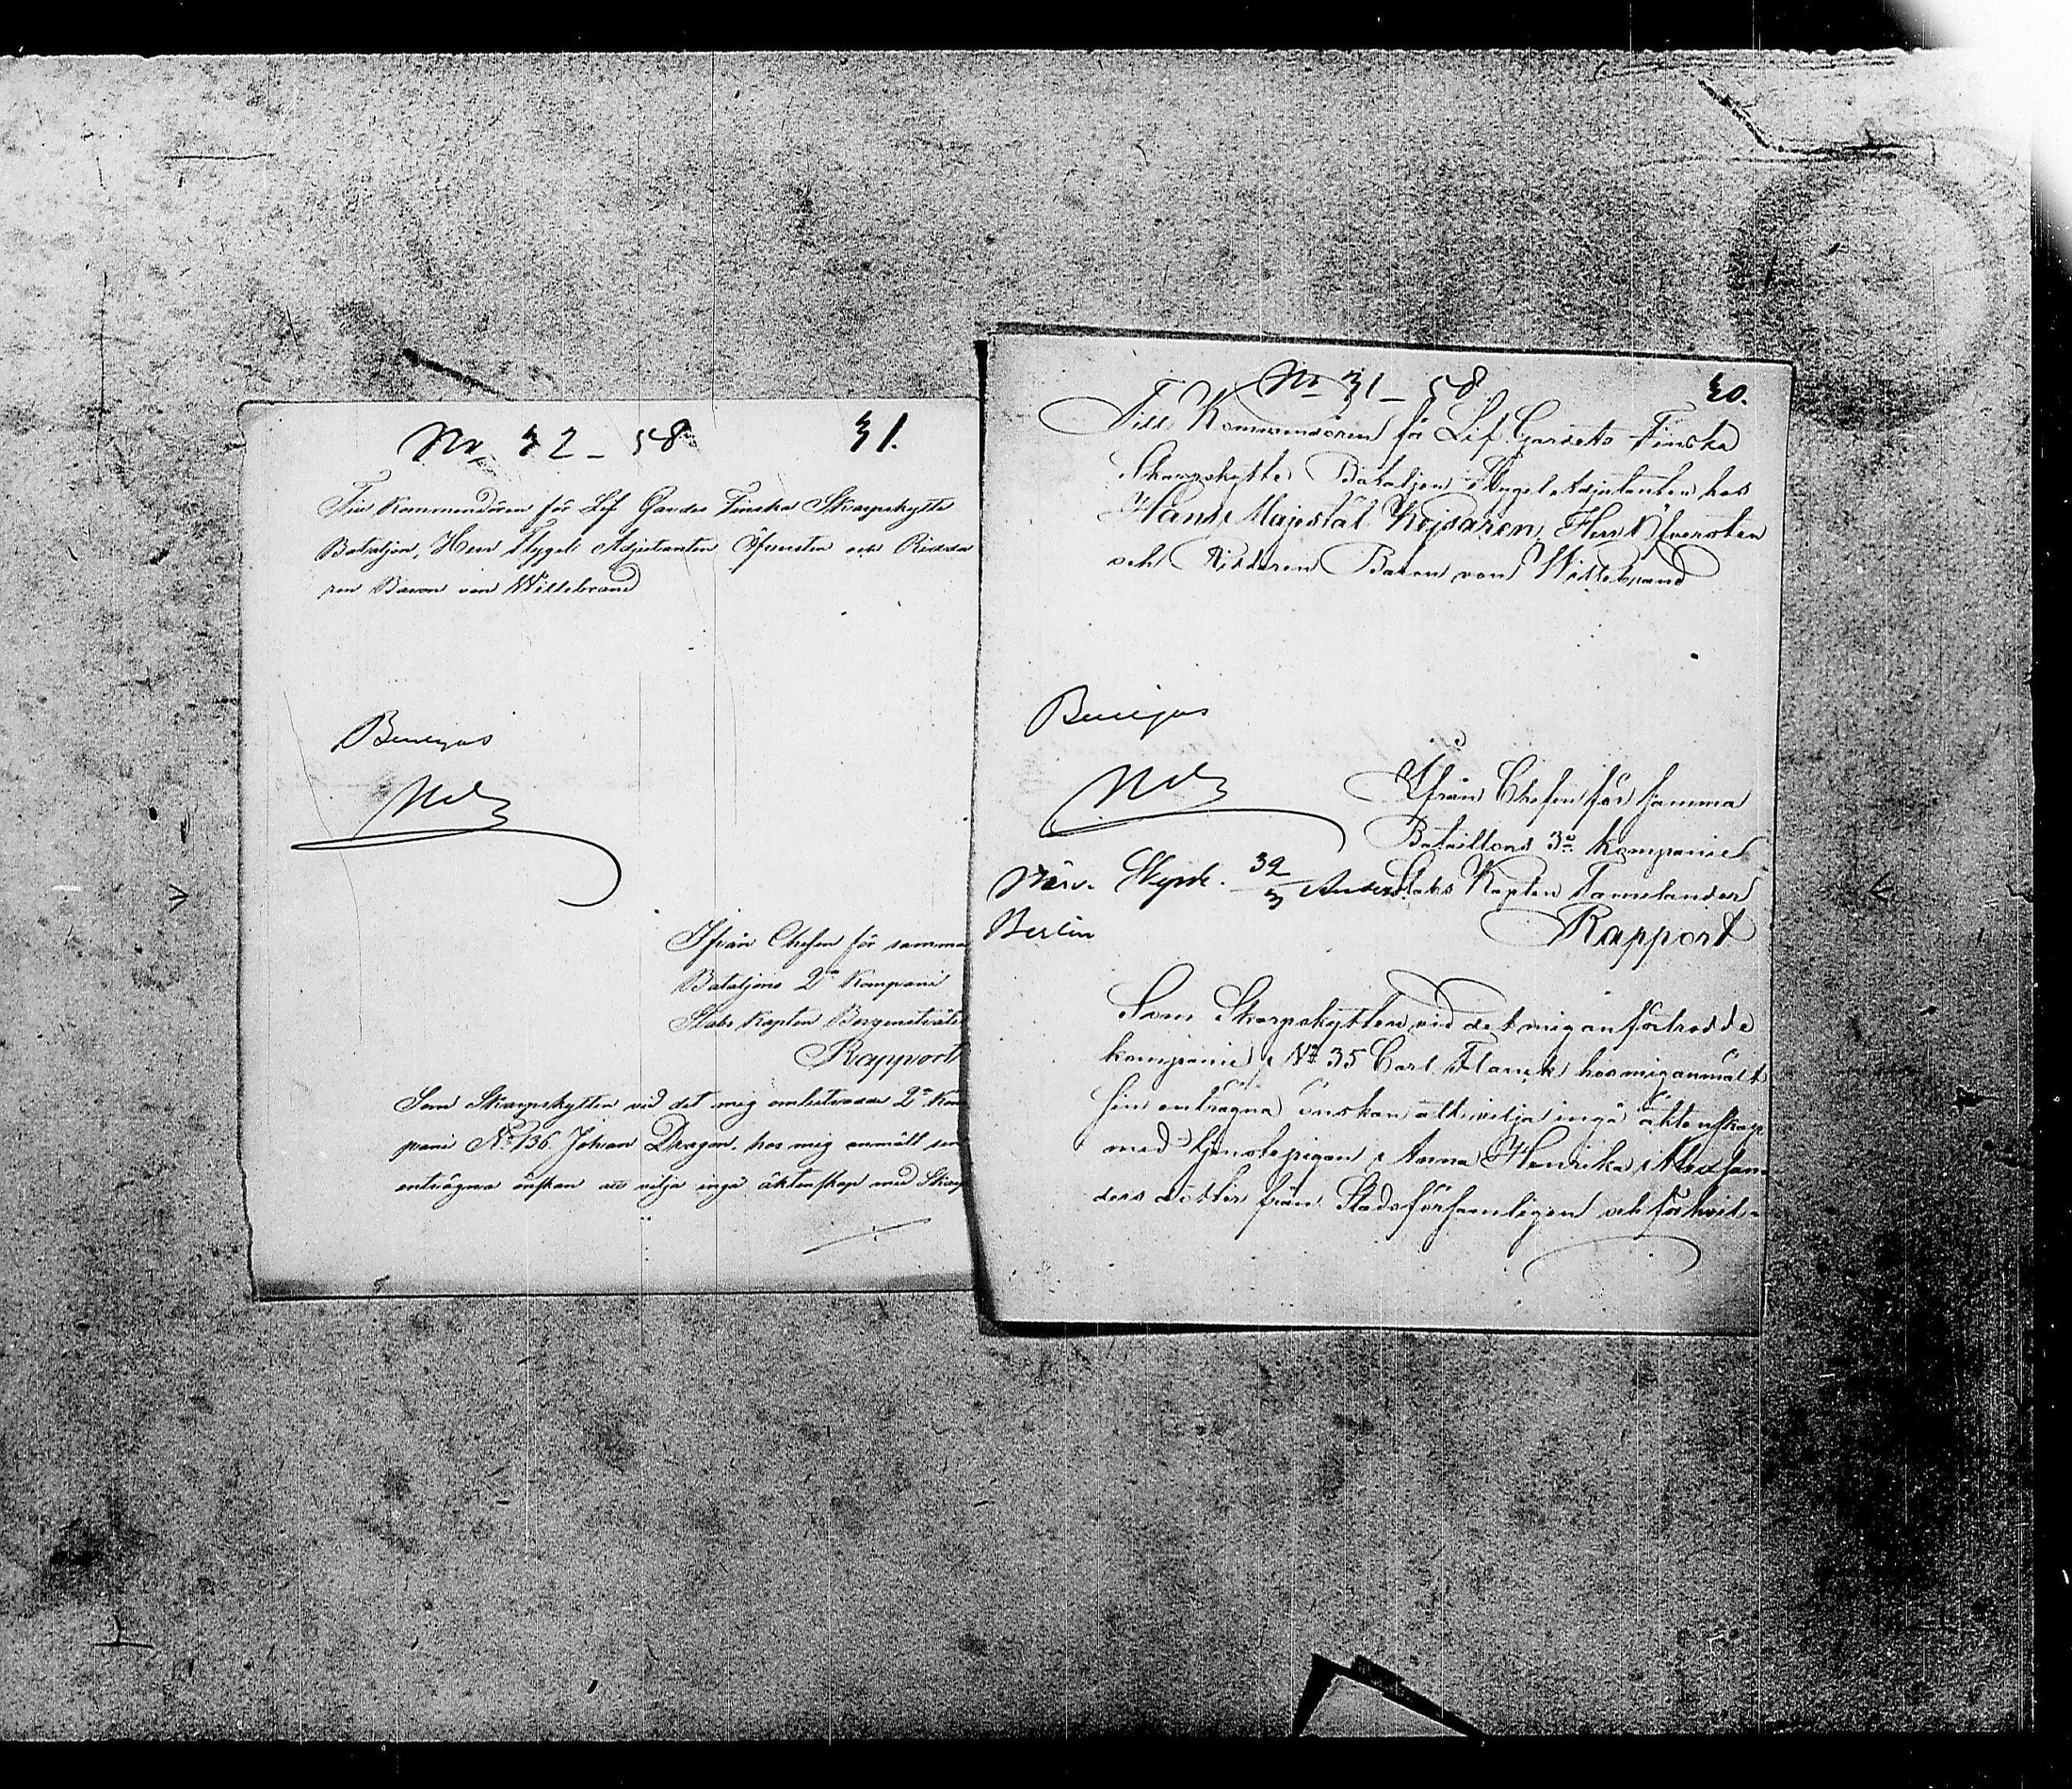 No 32 – 58 31.
Till Kommendören för Lif Gardes Finska Skarpskytte
Bataljon, Herr Flygel Adjutanten Öfversten och Ridda
ren Baron von Willebrand
Beviljas
Ifrån Chefen för samma
Bataljons 2a Kompani
Stabs Kapten Borgenström
Rapport
Som Skarpskytten vid det mig anbetrodde 2a Kom
pani No 136 Johan Dragon, hos mig anmält sin
enträgna önskan att vilja ingå äktenskap med
No 31 – 58 30.
Till Kommendören för Lif Gardets Finska
Skarpskytte Bataljon Flygel Adjutanten hos
Hans Majestät Kejsaren, Herr Öfversten
och Riddaren Baron von Willebrand
Beviljas
Ifrån Chefen för samma
Bataillons 3e Kompanie
Närv. Skpsk. 32/3 Anders Stabs Kapten Tamelander
Berlin Rapport
Som Skarpskytten vid det mig anförtrodde
kompanie No 35 Carl Flanck hos mig anmält
sin enträgna önskan att vilja ingå äktenskap
med tjenstepigan Anna Henrika Alexsan
ders dotter från Stadsförsamlingen och för hvil-